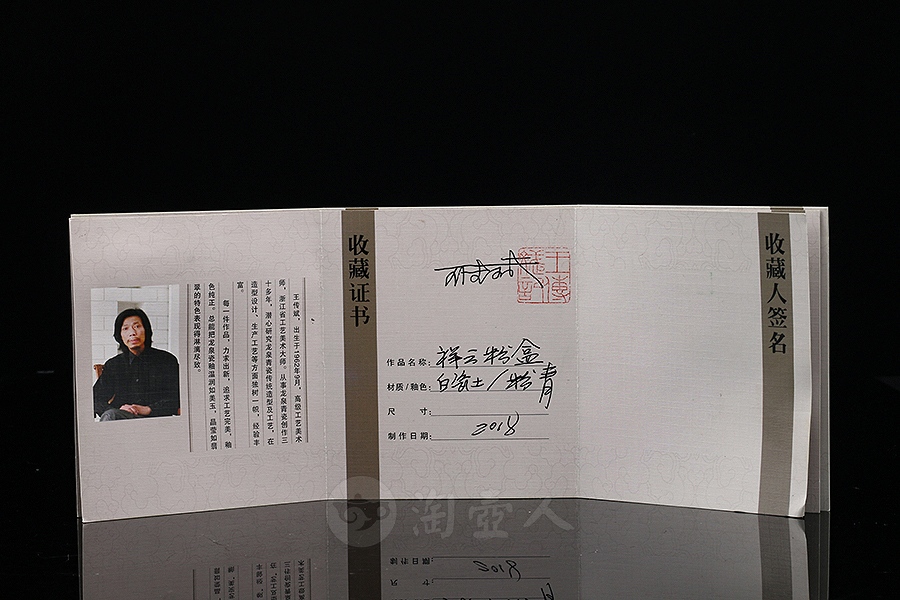 王传斌，出生于1962年9月，高级工艺美术
师，浙江省工艺美术大师。从事龙泉青瓷创作三
十多年，潜心研究龙泉青瓷传统造型及工艺，在
造型设计、生产工艺等方面独树一帜，经验丰
富。
每一件作品，力求出新，追求工艺完美，釉
色纯正。总能把龙泉瓷釉温润如美玉，晶莹如翡
翠的特色表现得淋漓尽致。
收藏证书
作品名称：祥云粉盒
材质/釉色：白瓷土/粉青
尺 寸：
制作日期：2018
收藏人签名
淘壶人